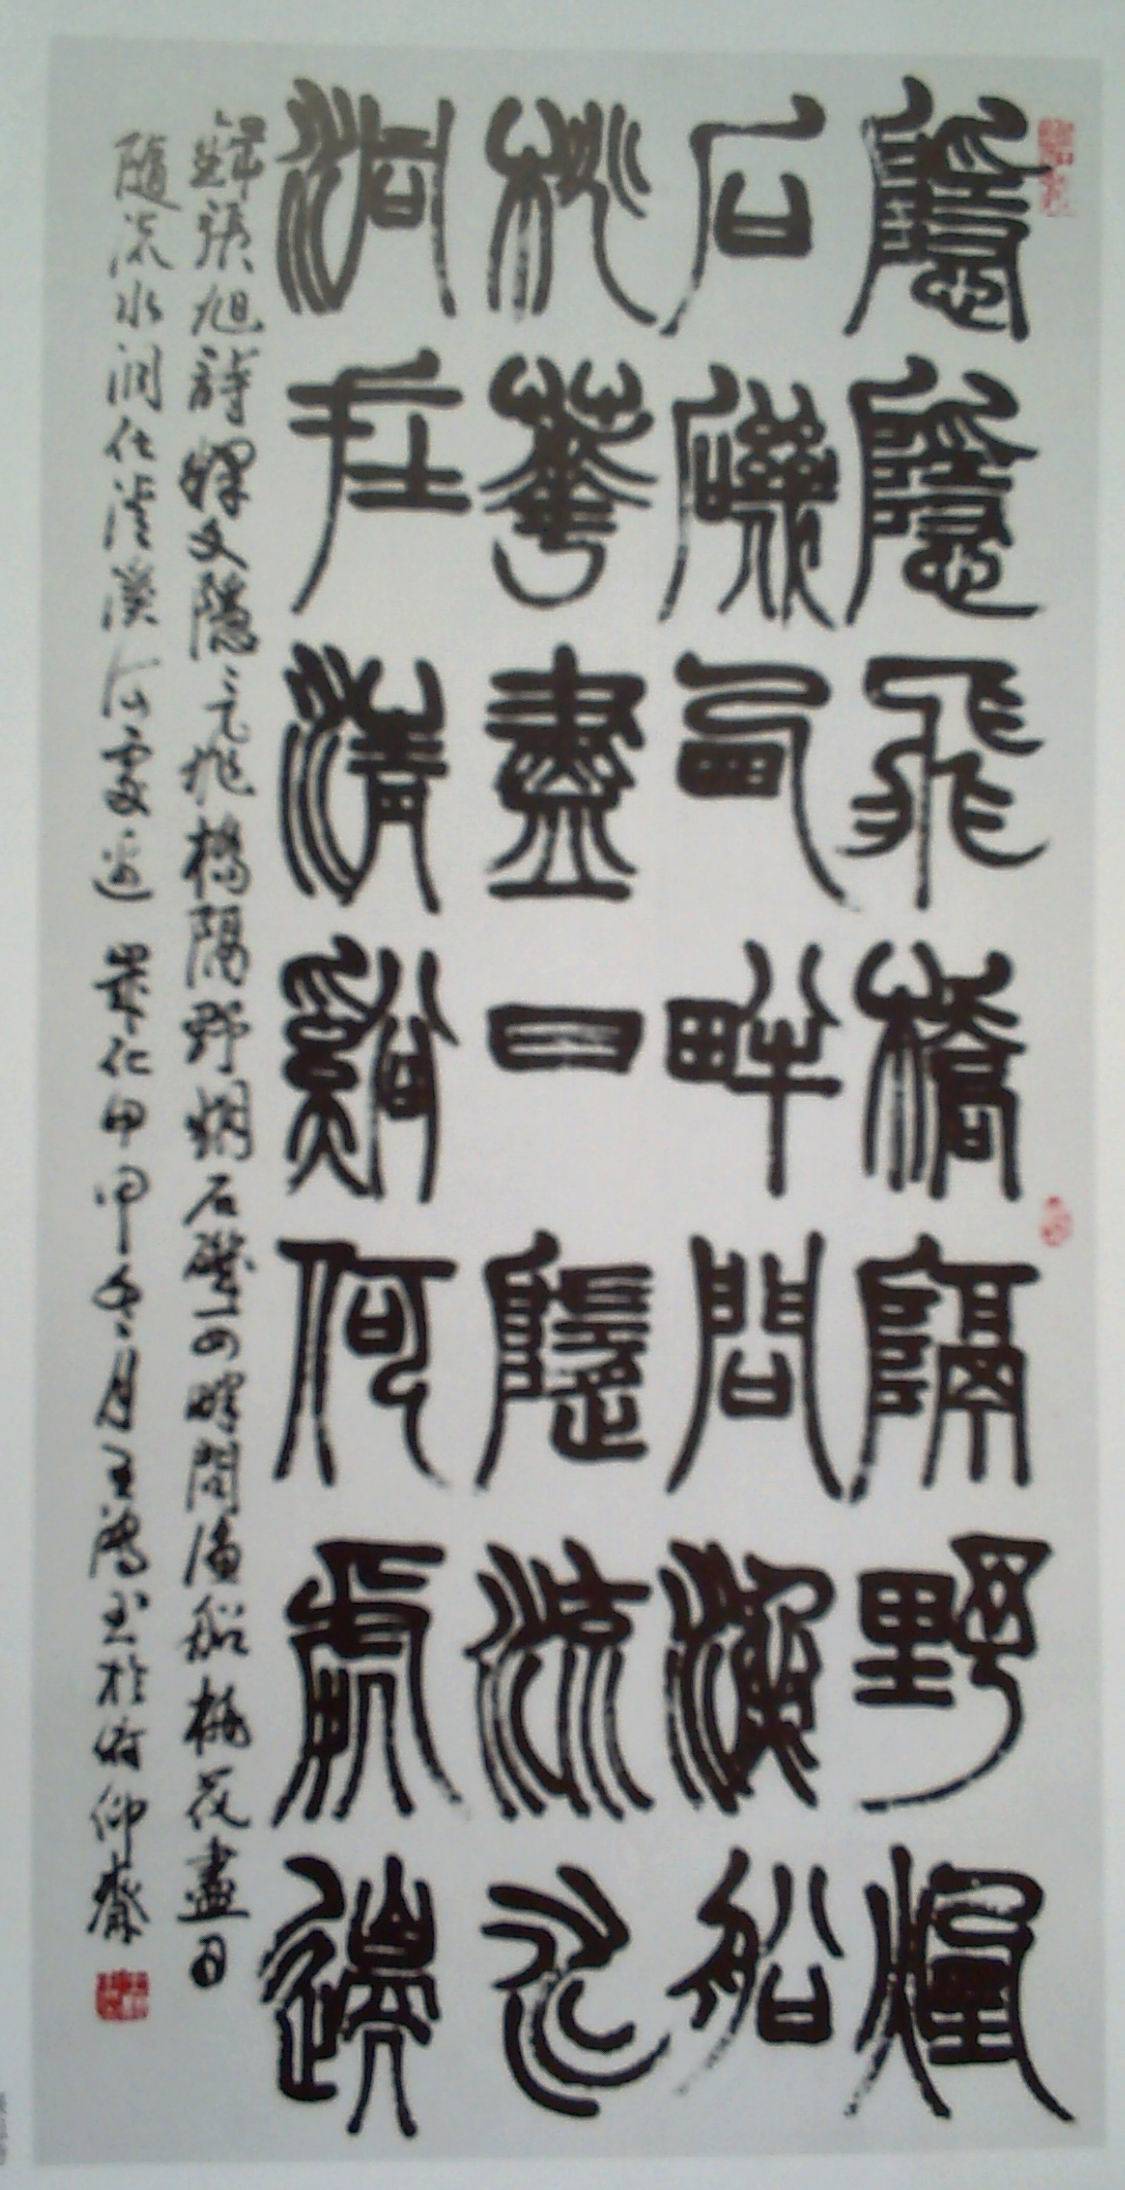 隱隱飛橋隔野煙
石磯西畔問漁船
桃華盡日隨流水
洞在清谿何處邊
錄張旭詩釋文隱隱飛橋隔野烟石磯西畔問漁船桃花盡日
隨流水洞在清溪何處邊 景仁甲申冬月王鴻書於仰齋